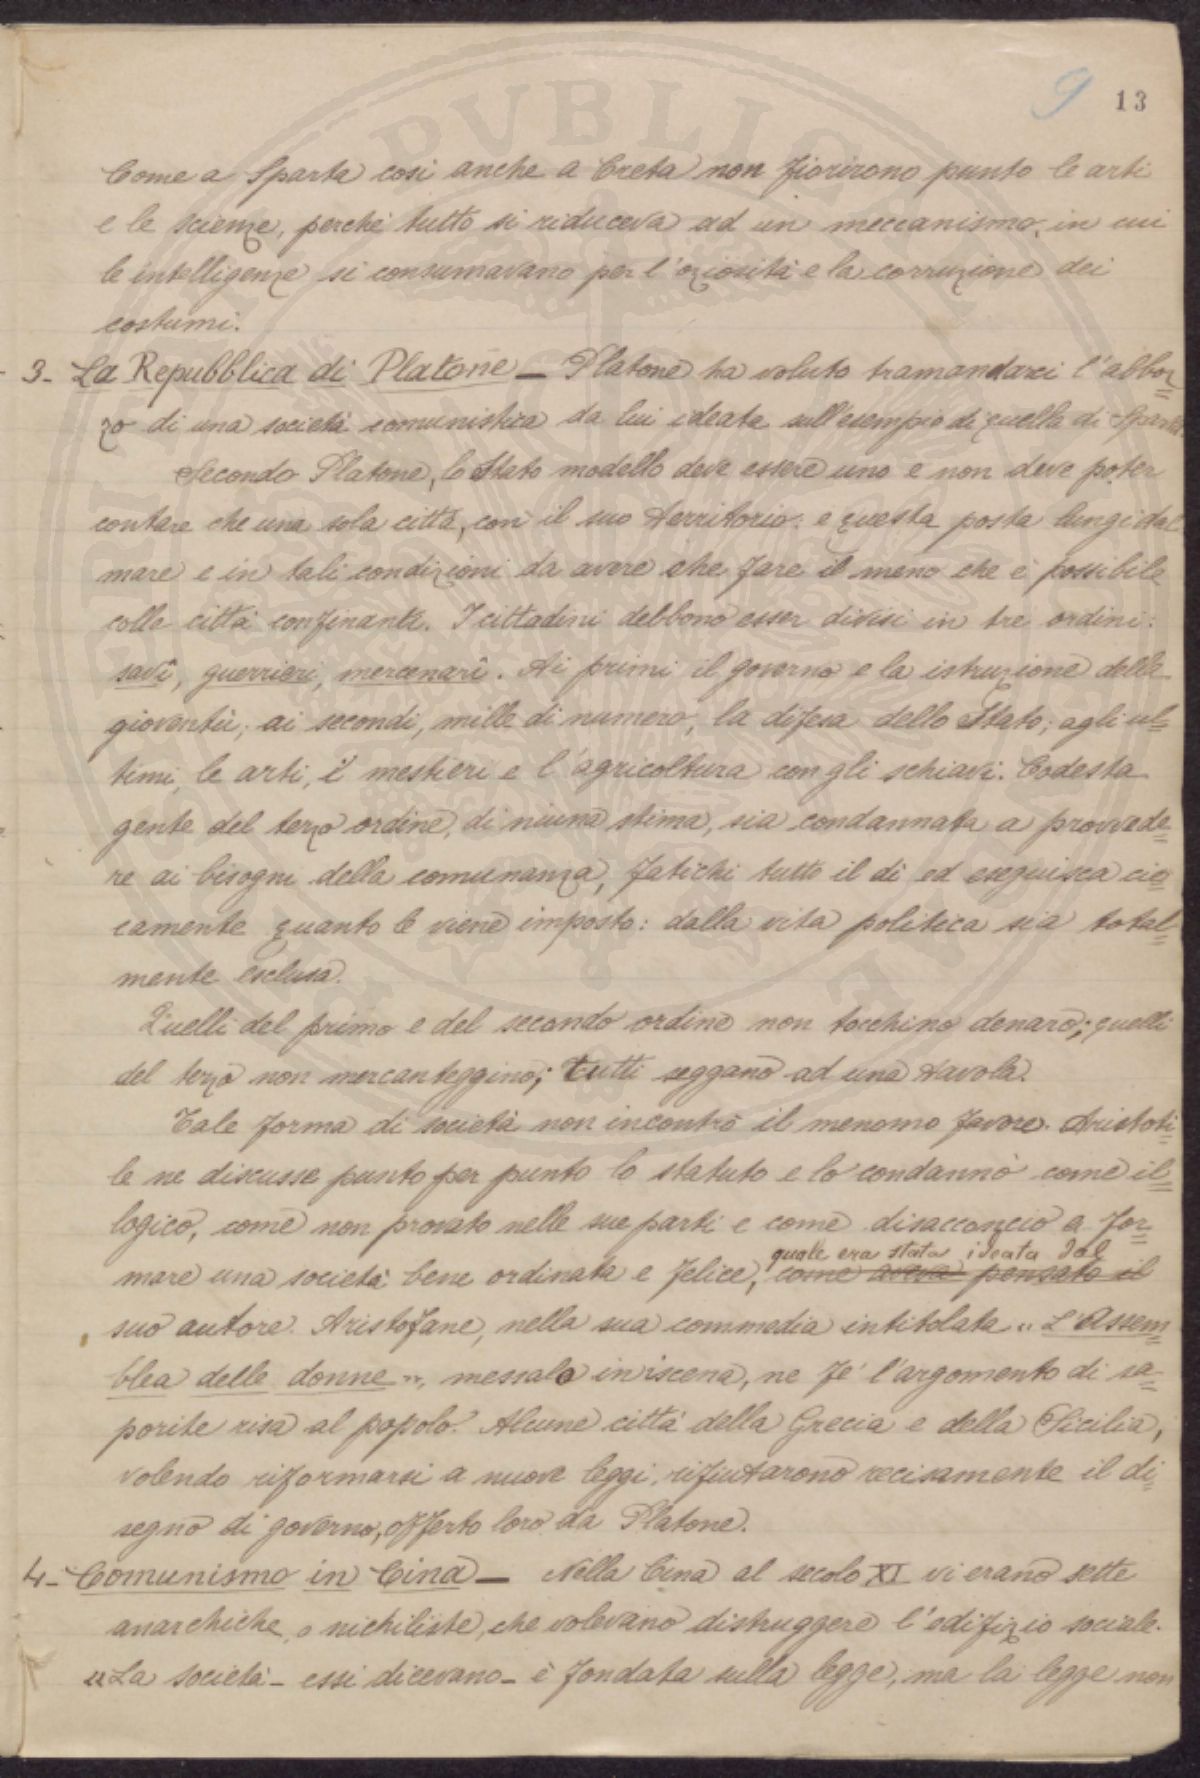 9 13
Come a Sparta così anche a Creta non fiorirono punto le arti
e le scienze, perchè tutto si riduceva ad un meccanismo, in cui
le intelligenze si consumavano per l'oziosità e la corruzione dei
costumi.
3- La Repubblica di Platone — Platone ha voluto tramandarci l'abboz=
zo di una società comunistica da lui ideata sull'esempio di quella di Sparta.
Secondo Platone, lo Stato modello deve essere uno e non deve poter
contare che una sola città, con il suo territorio: e questa posta lungi dal
mare e in tali condizioni da avere che fare il meno che è possibile
colle città confinanti. I cittadini debbono esser divisi in tre ordini:
savî, guerrieri, mercenarî. Ai primi il governo e la istruzione della
gioventù; ai secondi, mille di numero, la difesa dello Stato; agli ul=
timi, le arti, i mestieri e l'agricoltura con gli schiavi. Codesta
gente del terzo ordine, di niuna stima, sia condannata a provvede=
re ai bisogni della comunanza, fatichi tutto il dì ed eseguisca cie=
camente quanto le viene imposto: dalla vita politica sia total=
mente esclusa.
Quelli del primo e del secondo ordine non tocchino denaro; quelli
del terzo non mercanteggino; tutti seggano ad una tavola.
Tale forma di società non incontrò il menomo favore. Aristoti=
le ne discusse punto per punto lo statuto e lo condannò come il=
logico, come non provato nelle sue parti e come disacconcio a for=
quale era stata ideata dal
mare una società bene ordinata e felice, come aveva pensato il
suo autore. Aristofane, nella sua commedia intitolata „ L'Assem=
blea delle donne „, messala in iscena, ne fe' l'argomento di sa=
porite risa al popolo. Alcune città della Grecia e della Sicilia,
volendo riformarsi a nuove leggi, rifiutarono recisamente il di=
segno di governo, offerto loro da Platone.
4- Comunismo in Cina — Nella Cina al secolo XI vi erano sette
anarchiche, o nichiliste, che volevano distruggere l'edifizio sociale.
„ La società - essi dicevano - è fondata sulla legge, ma la legge non